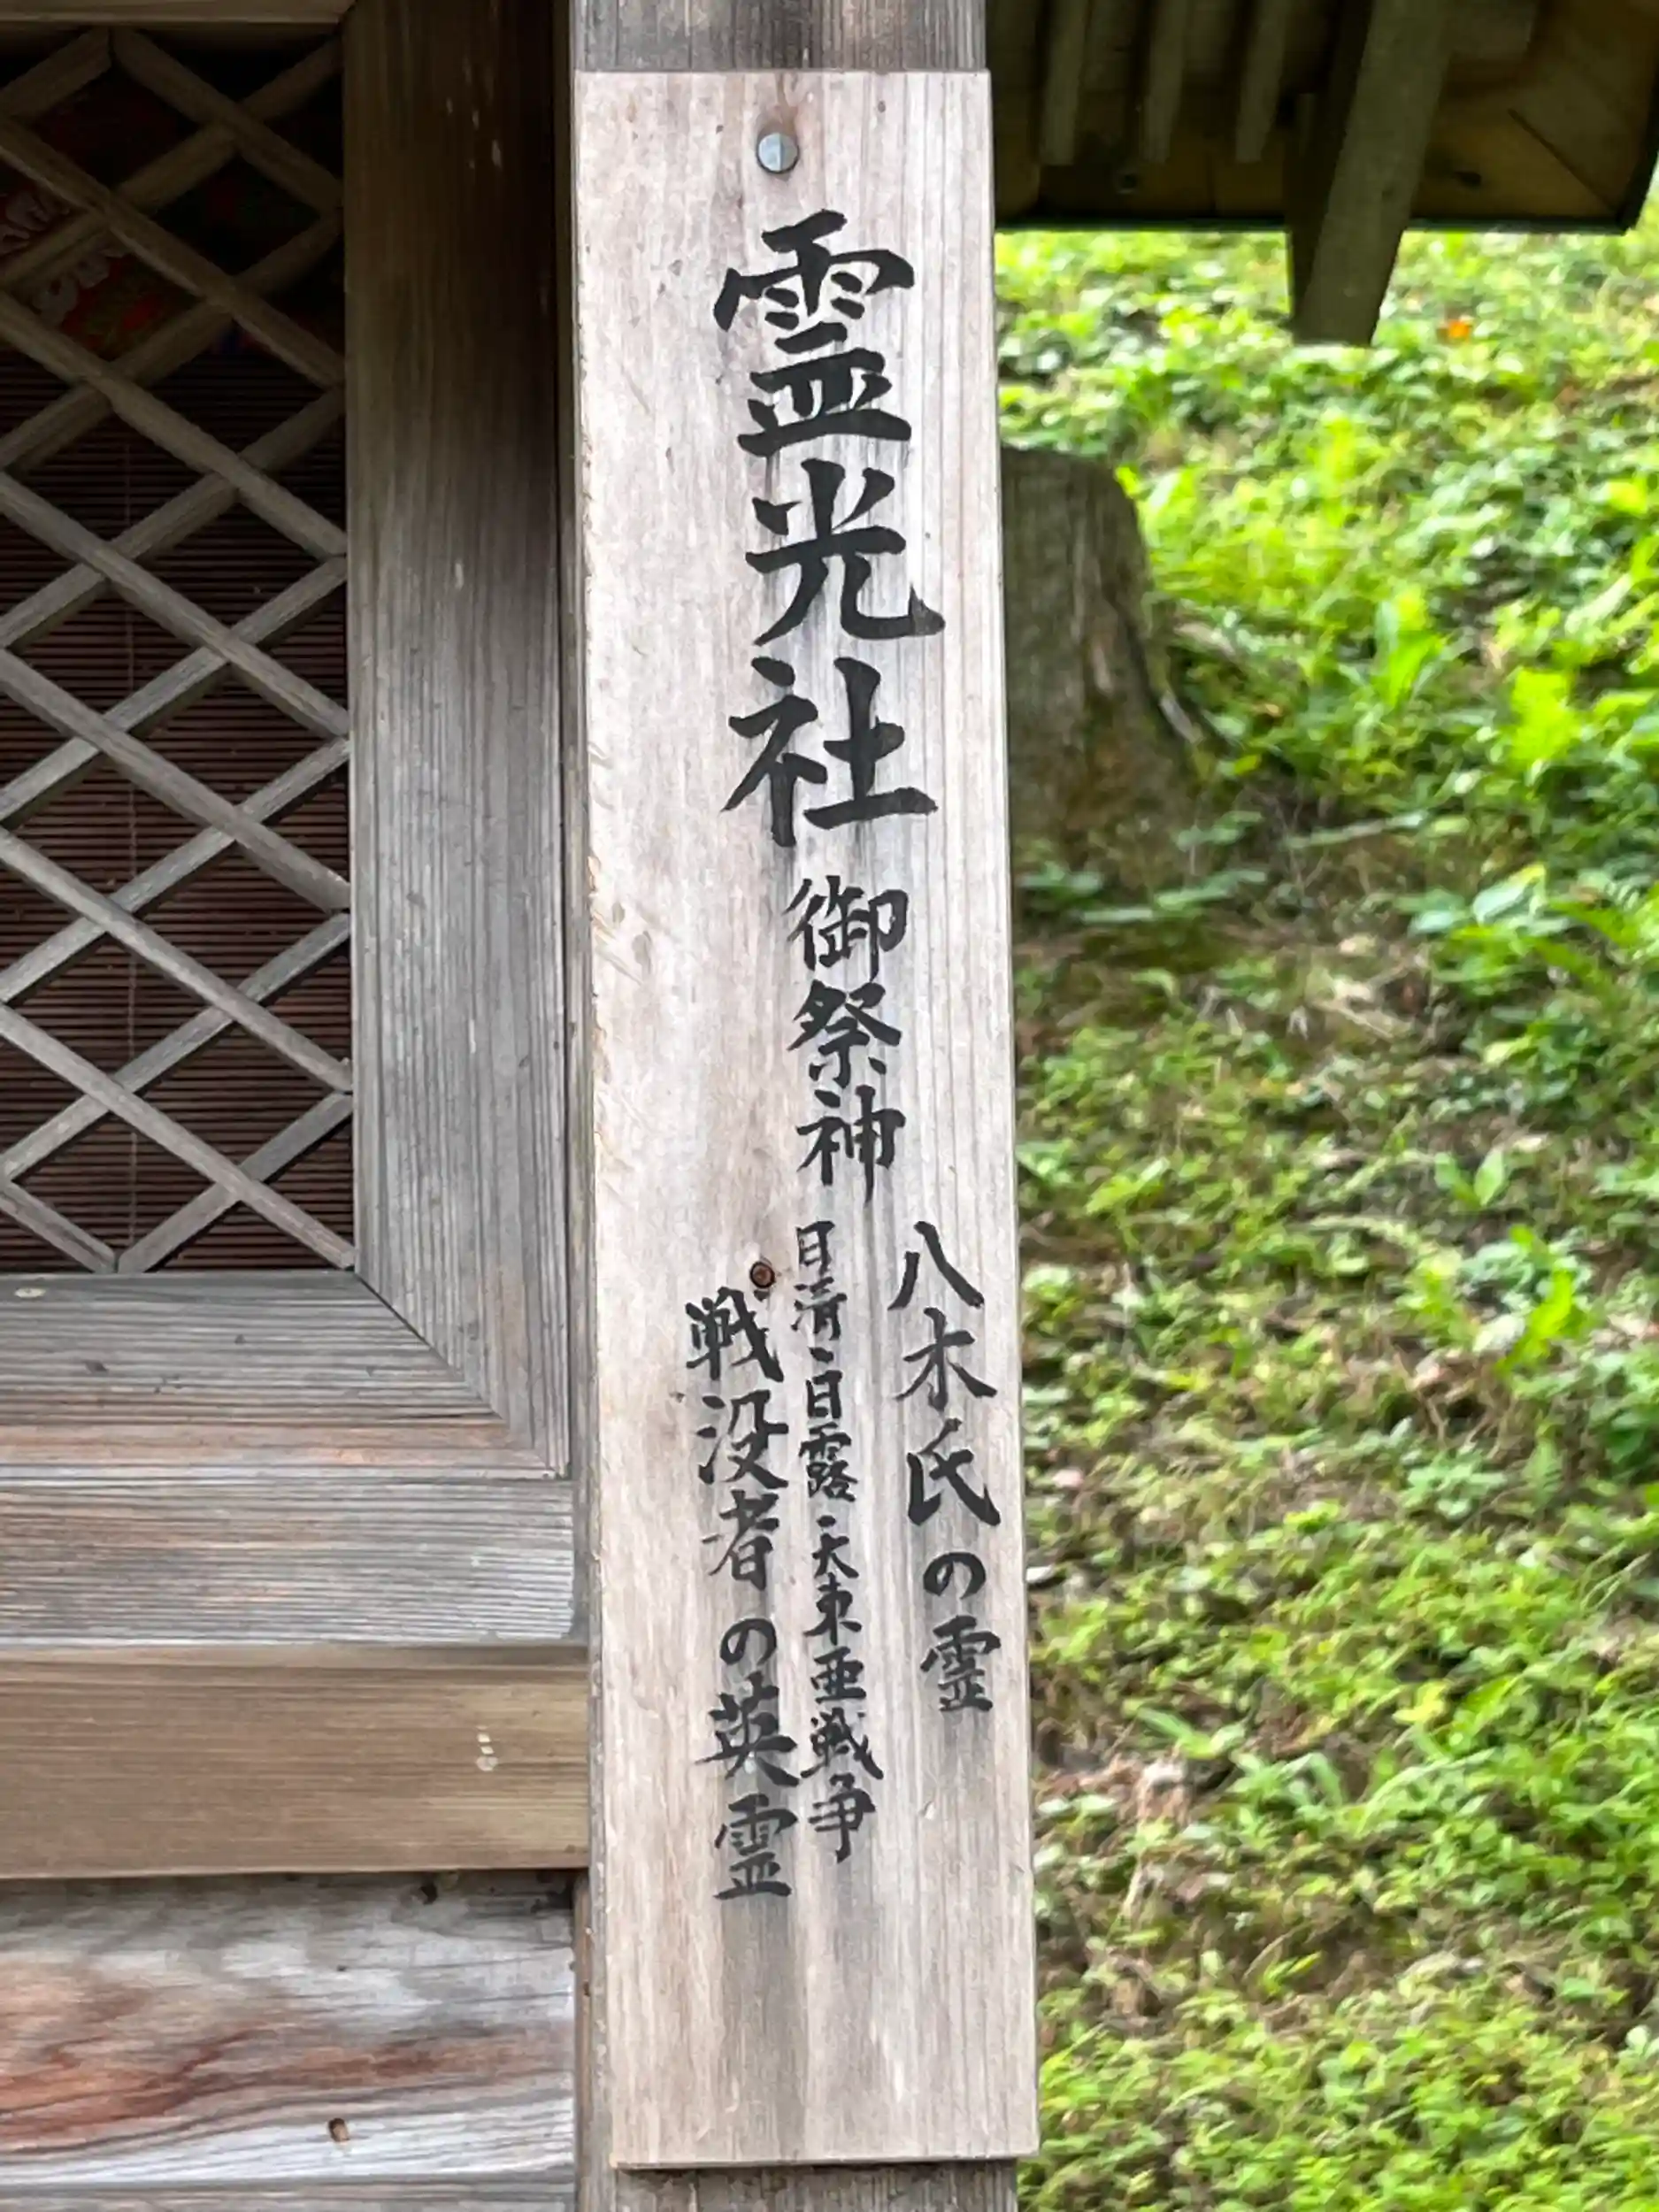 霊光社
御祭神
八木氏の霊
日清・日露・大東亜戦争
戦没者の英霊